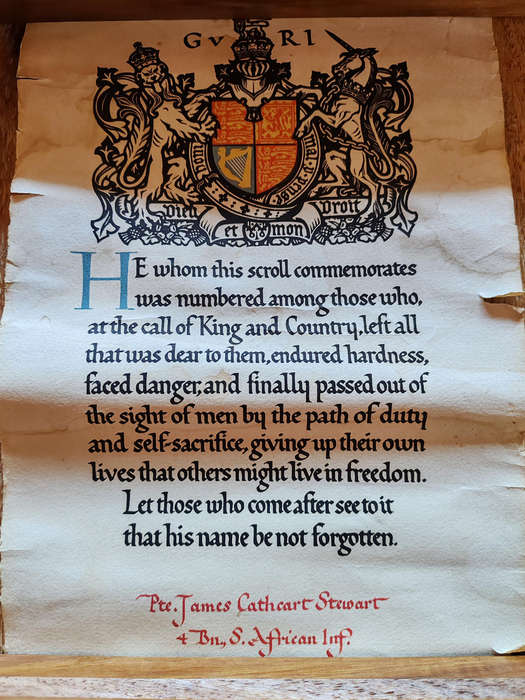 GV RI
HONI
MAL Y PENSE
Dieu et mon Droit
HE whom this scroll commemorates
was numbered among those who,
at the call of King and Country, left all
that was dear to them, endured hardness,
faced danger, and finally passed out of
the sight of men by the path of duty
and self-sacrifice, giving up their own
lives that others might live in freedom.
Let those who come after see to it
that his name be not forgotten.
Pte. James Cathcart Stewart
4 Bn., S. African Inf.